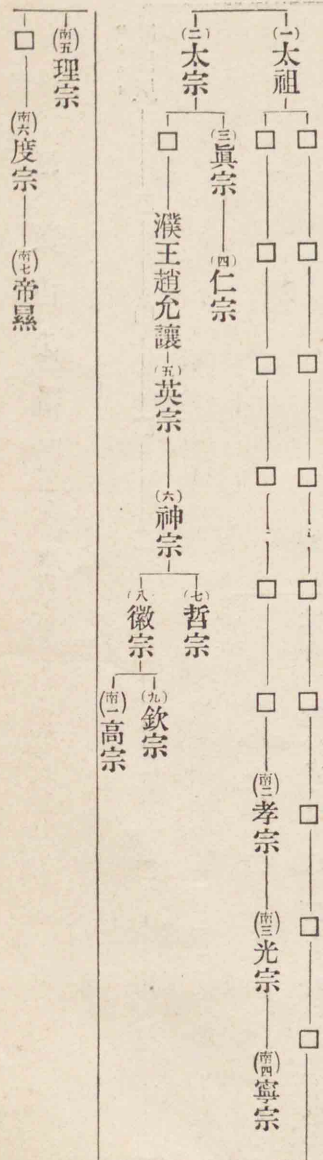 (一)太祖
(南二)孝宗
(南三)光宗
(南四)寧宗
(二)太宗
(三)眞宗
(四)仁宗
濮王趙允讓
(五)英宗
(六)神宗
(七)哲宗
(八)徽宗
(九)欽宗
(南一)高宗
(南五)理宗
(南六)度宗
(南七)帝㬎